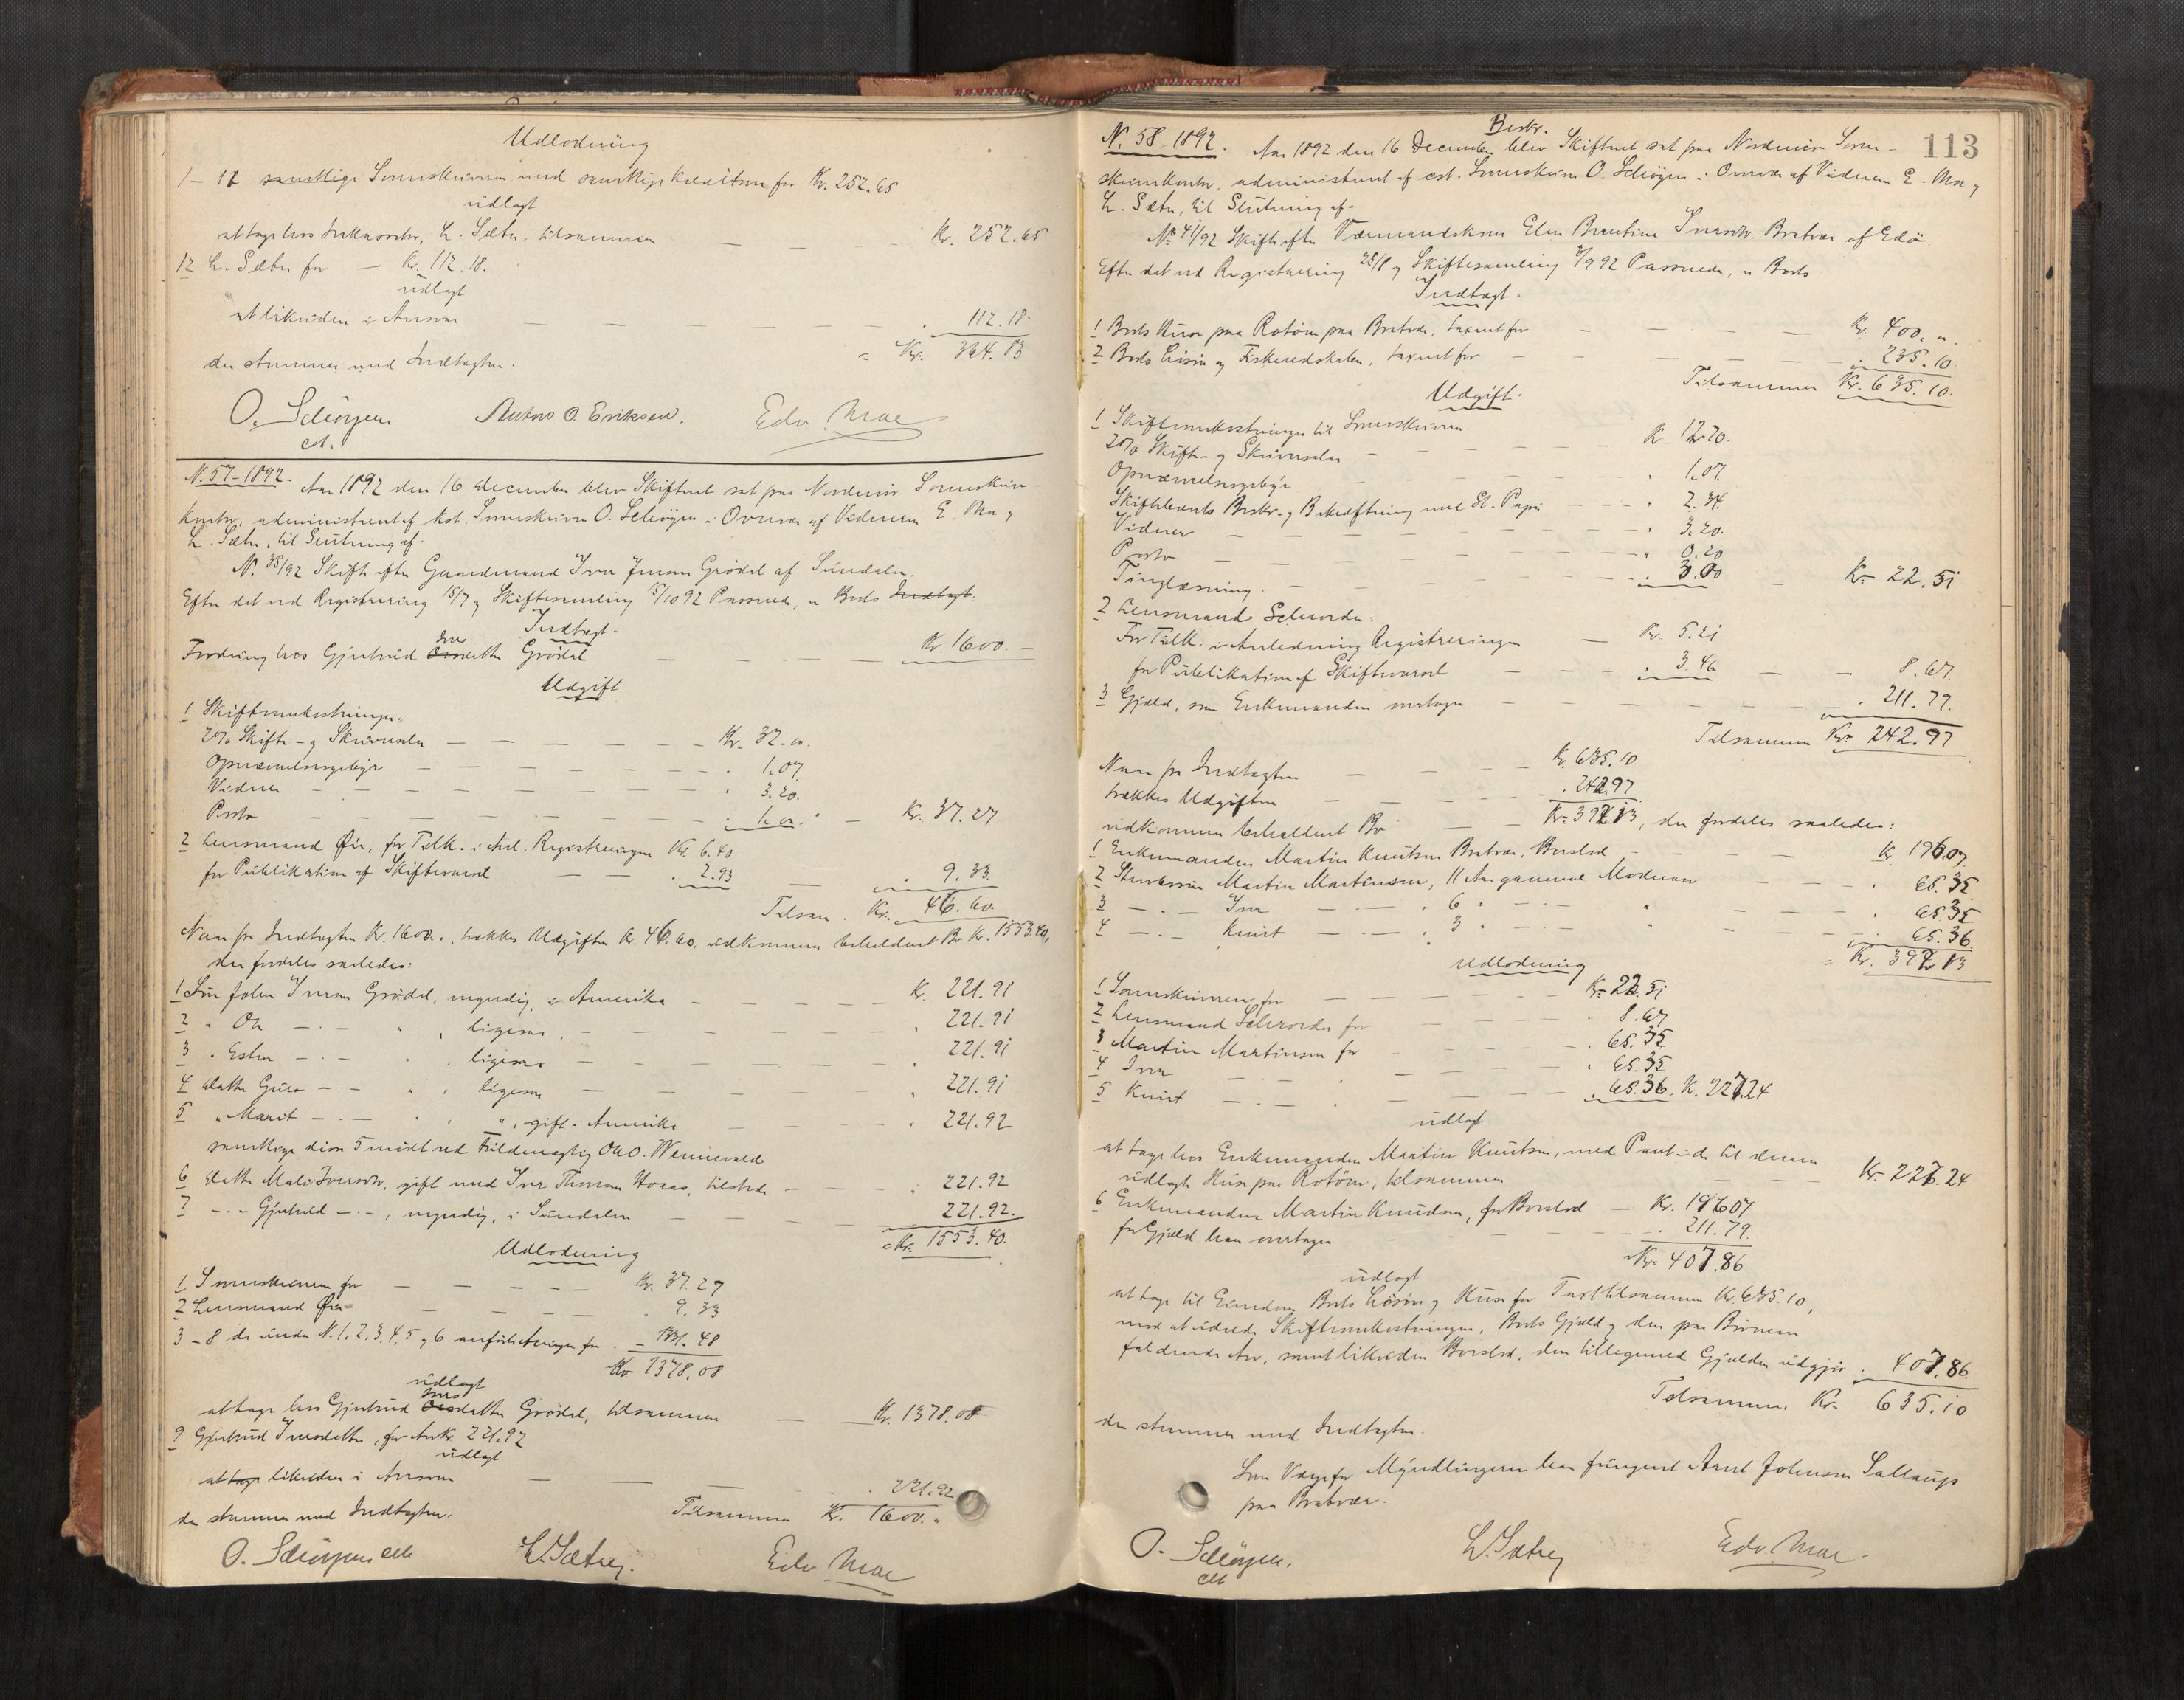 Udlodning
1 - 11 samtlige Sorenskriveren med samtlige Kreditorer for Kr. 252.65
udlagt
at tage hos Inkassator, L. Sæter, tilsammen — — Kr. 252.65
12 L. Sæter for — Kr. 112.18.
udlagt
at likvidere i Ansvar — — — — — 112.18.
der stemmer med Indtægten. Kr. 364.83
O. Schiøyen Anton O. Eriksen. Edv. Moe
cst.
N. 57-1892. Aar 1892 den 16 december blev Skifteret sat paa Nordmør Sorenskriver-
kontor, administreret af kst. Sorenskriver O. Schiøyen i Overvær af Vidnerne E. Moe og
L. Sæter, til Slutning af.
N. 35/92 Skifte efter Gaardmand Iver Jensen Grødal af Sundalen.
Efter det ved Registrering 15/7 og Skiftesamling 5/10 92 Passerede, er Boets Indtægt.
Indtægt.
Fordring hos Gjertrud Iversdatter Grødal — — — Kr. 1600. —
Udgift
1 Skifteomkostninger.
2% Skifte- og Skriversalær — — — — Kr. 32.00.
Opnævnelsesgebyr — — — — 1.07
Vidner — — — — 3.20.
Porto — — — — 1.00. — Kr. 37.27
2 Lensmand Øie, for Tilk. i Anl. Registreringen Kr. 6.40
for Publikation af Skiftevarsel — — 2.93 — 9.33.
Tilsam. Kr. 46.60.
Naar fra Indtægten Kr. 1600., trækkes Udgiften Kr. 46.60. udkommer beholdent Bo Kr. 1553.40,
der fordeles saaledes:
1 Søn John Iversen Grødal, myndig, i Amerika — — — Kr. 221.91
2 " Ole — . — " , ligesaa, — — — 221.91
3 " Esten — . — " , ligesaa — — — 221.91
4 Datter Guro — . — " , ligesaa — — — 221.91
5 " Marit — . — " , gift i Amerika — — 221.92
samtlige disse 5 mødt ved Fuldmægtig Ole O. Wennevold
6 Datter Mali Iversdtr, gift med Iver Thoresen Hoaas, tilstede — — 221.92
7 — " — Gjertrud — . — , myndig, i Sundalen — — 221.92.
Kr. 1553.40.
Udlodning
1 Sorenskriveren for — — — — Kr. 37.27
2 Lensmand Øie — — — — 9.33
3 - 8 de under N. 1, 2, 3, 4, 5 og 6 anførte Arvinger for — 1331.48
Kr. 1378.08
udlagt
at tage hos Gjertrud Iversdatter Grødal, tilsammen — Kr. 1378.08
9 Gjertrud Iversdatter, for Arv Kr. 221.92
udlagt
at tage likvidere i Ansvar — — — 221.92
der stemmer med Indtægten. Tilsammen Kr. 1600. "
O. Schiøyen cst. L. Sæter. Edv. Moe

113
Beskr.
N. 58-1892. Aar 1892 den 16 December blev Skifteret sat paa Nordmør Soren-
skriverkontor, administreret af cst. Sorenskriver O. Schiøyen i Overvær af Vidnerne E. Moe og
L. Sæter, til Slutning af.
No 41/92 Skifte efter Værmandskone Elen Berntine Iversdtr. Bratvær af Edø.
Efter det ved Registrering 22/8 og Skiftesamling /9 92 Passerede, er Boets
Indtægt.
1 Boets Huse paa Rotøen paa Bratvær, taxeret for — — — Kr. 400. "
2 Boets Løsøre og Fiskeredskaber, taxeret for — — — 235.10.
Tilsammen Kr. 635.10.
Udgift.
1 Skifteomkostninger til Sorenskriveren.
2% Skifte- og Skriversalær — — — Kr. 12.70.
Opnævnelsesgebyr — — — 1.07.
Skiftebrevets Beskr. og Bekræftning med St. Papir — — — 2.34.
Vidner — — — 3.20.
Porto — — — 0.20
Tinglæsning. — — — 3.00 — Kr. 22.51
2 Lensmand Schrøder.
For Tilk. i Anledning Registreringen — Kr. 5.21
for Publikation af Skiftevarsel — — 3.46 — 8.67.
3 Gjæld, som Enkemanden overtager — — — 211.79.
Tilsammen Kr. 242.97
Naar fra Indtægten — — — Kr. 635.10
trækkes Udgiften — — — 242.97
udkommer beholdent Bo — — — Kr. 392.13, der fordeles saaledes:
1 Enkemanden Martin Knutsen Bratvær, Boeslod — — Kr. 196.07.
2 Sønnen Martin Martinsen, 11 Aar gammel Mødrearv — — 65.35
3 — . — Iver — . — , 6 " — . — " — — 65.35
4 — . — Knut — . — , 3 " — . — " — — 65.36
Kr. 392.13.
Udlodning
1 Sorenskriveren for — — — Kr. 22.51
2 Lensmand Schrøder for — — — 8.67
3 Martin Martinsen for — — — 65.35
4 Iver — . — . — — 65.35
5 Knut — . — . — — 65.36. Kr. 227.24
udlagt
at tage hos Enkemanden Martin Knutsen, med Pant i de til denne
udlagte Huse paa Rotøen, tilsammen — — Kr. 227.24
6 Enkemanden Martin Knudsen, for Boeslod — Kr. 196.07
for Gjæld han overtager — — — 211.79.
Kr. 407.86
udlagt
at tage til Eiendom Boets Løsøre og Huse for Taxt tilsammen Kr. 635.10,
mod at udrede Skifteomkostninger, Boets Gjæld og den paa Børnene
faldende Arv, samt likvidere Boeslod, den tilligemed Gjælden udgjør 407.86.
Tilsammen Kr. 635.10
der stemmer med Indtægten.
Som Værge for Myndlingerne har fungeret Arnt Johnsen Sallaup
paa Bratvær.
O. Schiøyen. L. Sæter Edv. Moe
cst